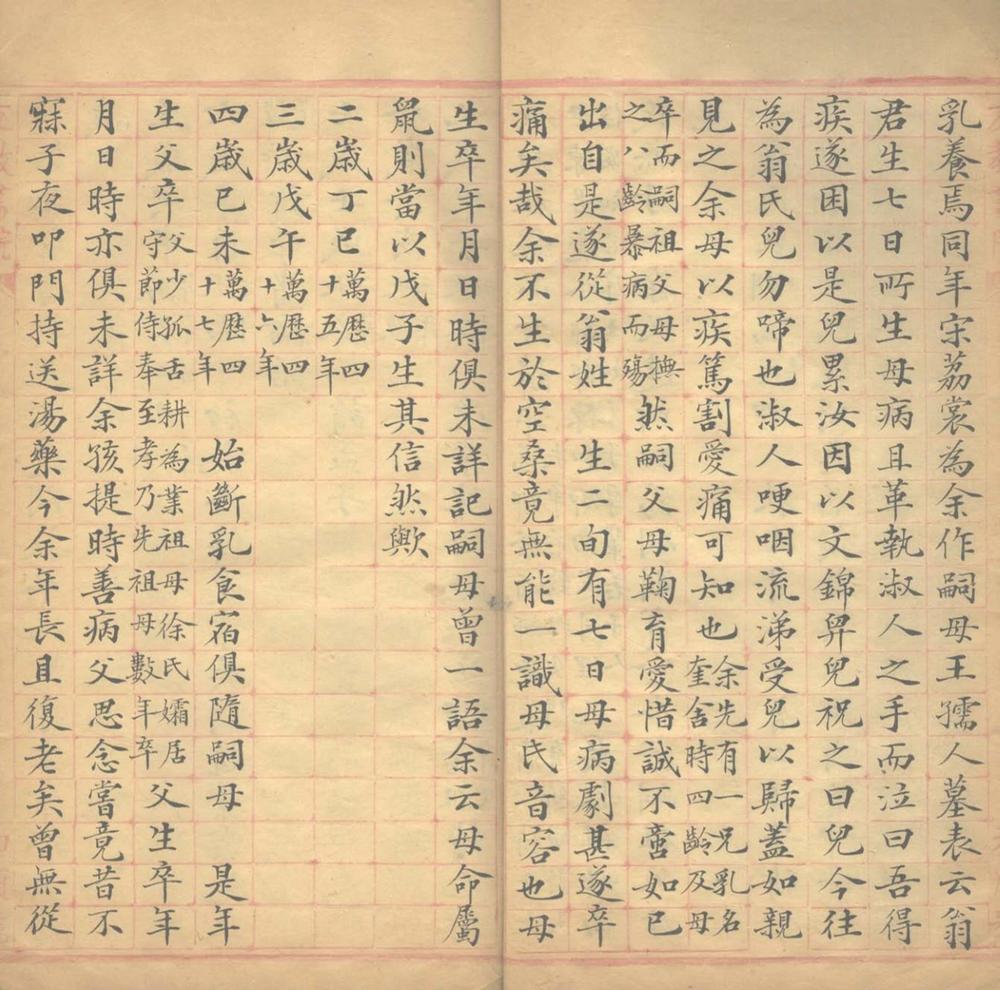 乳養焉同年宋荔裳為余作嗣母王孺人墓表云翁
君生七日所生母病且革執淑人之手而泣曰吾得
疾遂困以是兒累汝因以文錦舁兒祝之曰兒今往
為翁氏兒勿啼也淑人哽咽流涕受兒以歸蓋如親
見之余母以疾篤割愛痛可知也余先有一兄乳名奎舍時四齡及母
卒而嗣祖父母撫之八齡暴病而殤然嗣父母鞠育愛惜誠不啻如已
出自是遂從翁姓　生二旬有七日母病劇甚遂卒
痛矣哉余不生於空桑竟無能一識母氏音容也母
生卒年月日時俱未詳記嗣母曾一語余云母命屬
鼠則當以戊子生其信然歟
二歲丁巳萬歷四十五年
三歲戊午萬歷四十六年
四歲已未萬歷四十七年　始斷乳食宿俱隨嗣母　是年
生父卒父少孤舌耕為業祖母徐氏孀居守節侍奉至孝乃先祖母數年卒父生卒年
月日時亦俱未詳余孩提時善病父思念嘗竟昔不
寐子夜叩門持送湯藥今余年長且復老矣曾無從